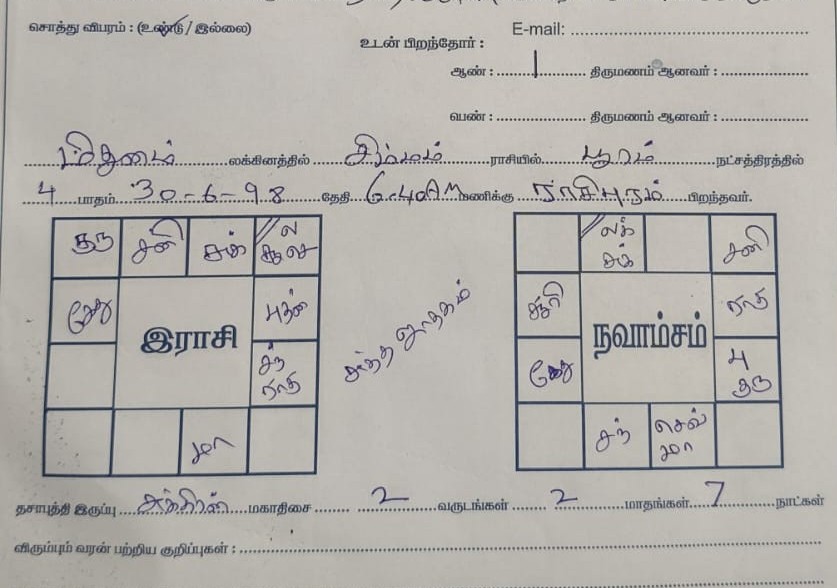 சொத்து விபரம் : (உண்டு / இல்லை)
E-mail: ........................
உடன் பிறந்தோர் :
ஆண் : ....1.... திருமணம் ஆனவர் : ................
பெண் : ................ திருமணம் ஆனவர் : ................
மிதுனம் லக்கினத்தில் சிம்மம் ராசியில் பூரம் நட்சத்திரத்தில்
4 பாதம் 30-6-98 தேதி 6.40AM மணிக்கு ராசிபுரம் பிறந்தவர்.
குரு சனி சுக் ல சூ செ
லக் சுக் சனி
கேது புதன்
சூரி ராகு
இராசி
நவாம்சம்
சுத்த ஜாதகம்
சந் ராகு
கேது பு குரு
மா
சந் செவ் மா
தசாபுத்தி இருப்பு சுக்கிரன் மகாதிசை 2 வருடங்கள் 2 மாதங்கள் 7 நாட்கள்
விரும்பும் வரன் பற்றிய குறிப்புகள் : ........................